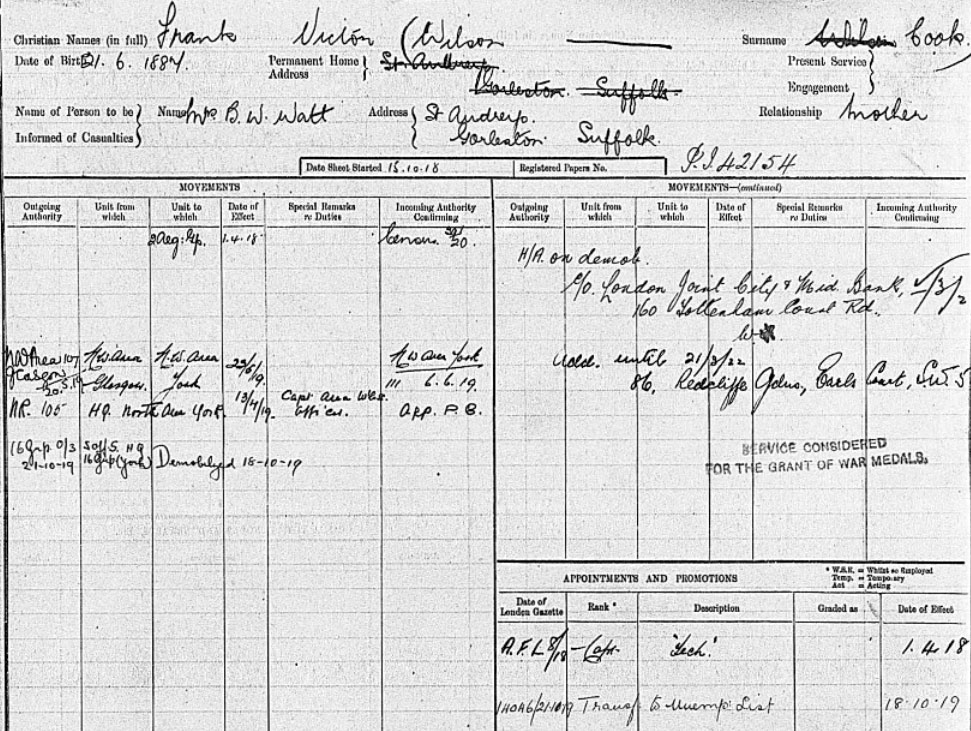 Christian Names (in full) Frank Victor (Wilson Surname Wilson Cook
Date of Birth 21. 6. 1887. Permanent Home Address } St. Andrews Present Service }
Gorleston. Suffolk. Engagement
Name of Person to be } Name Mrs B. W. Watt Address { St Andrews. Relationship Mother
Informed of Casualties } Gorleston Suffolk.
Date Sheet Started 15.10.18 Registered Papers No. P.I.42154
MOVEMENTS
Outgoing Authority Unit from which Unit to which Date of Effect Special Remarks re Duties Incoming Authority Confirming
1.4.18 20.
N.W. Area N.W. Area N.W. Area York
Glasgow. York 6.6.19.
105 HQ. North Area York. Capt Area
Officer. App. P. B.
16 Grp 0/3 HQ
21-10-19 16 Grp (York) Demobilized 18-10-19
MOVEMENTS—(continued)
Outgoing Authority Unit from which Unit to which Date of Effect Special Remarks re Duties Incoming Authority Confirming
H/A. on demob.
c/o. London Joint City & Mid. Bank,
160 Tottenham Court Rd.
W
Add. until 21/3/22
86, Redcliffe Gdns, Earls Court, S.W. 5
SERVICE CONSIDERED
FOR THE GRANT OF WAR MEDALS.
APPOINTMENTS AND PROMOTIONS
* W.S.E. = Whilst so Employed
Temp. = Temporary
Act = Acting
Date of London Gazette Rank * Description Graded as Date of Effect
A.F.L 8/18 Capt. 'Tech.' 1.4.18
Transf to Unemp: List 18.10.19